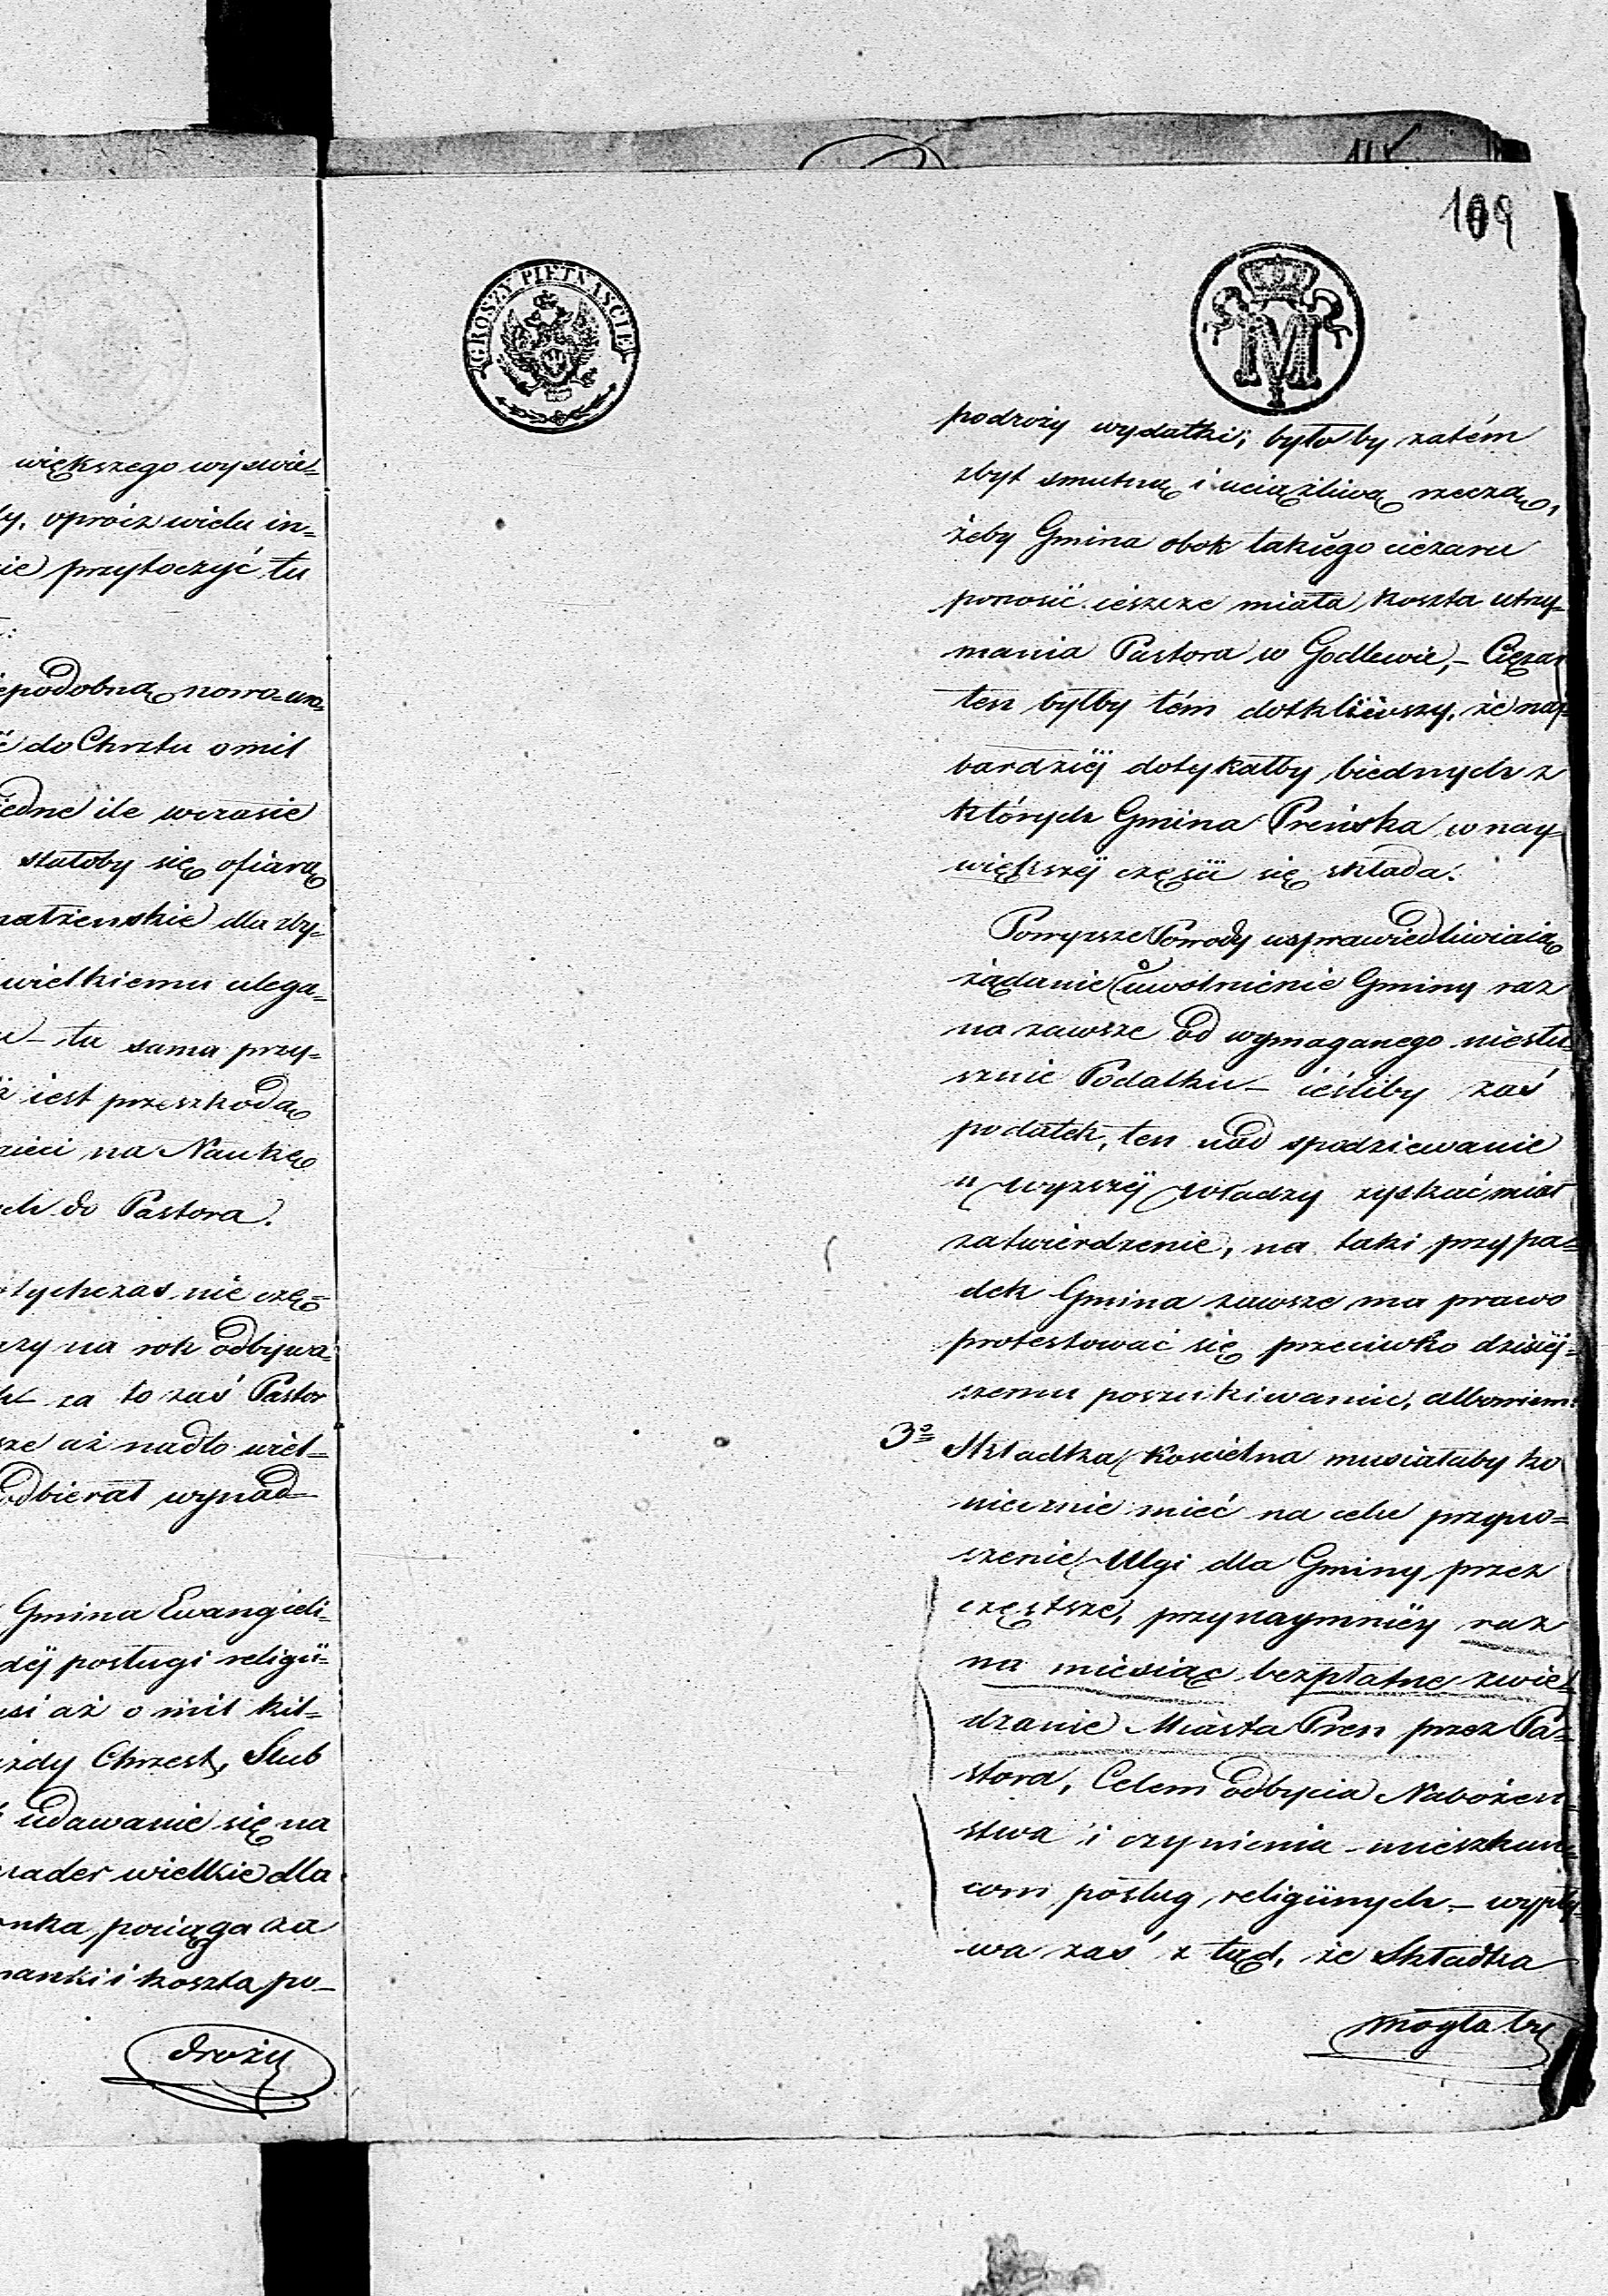 większego wyswie-
ty, oprócz wielu in-
ie przytoczyć tu
podobną nowo-uro-
do Chrztu o mil
iedne ile wczasie
stałoby się ofiarą
małżenskie dla zby-
wielkiemu ulega-
tu sama przy-
iest przeszkodą
zieci na Naukę
ch do Pastora.
tychczas nie czę-
azy na rok odbywa-
za to zaś Pastor
sze aż nadto wiel-
odbierał wynad-
Gmina Ewangieli-
déj posługi religii-
si aż o mil kil-
ażdy Chrzest, Slub
udawanie się na
nader wielkie dla
onka, pociąga za
manki i koszta po-
droży
GROSZY PIĘTNAŚCIE
109
M
podroży wydatki; byłoby zatém
zbyt smutną i uciążliwą rzeczą,
żeby Gmina obok takiego ciężaru
ponosić ieszcze miała koszta utrzy-
mania Pastora w Godlewie,- Ciężar
ten byłby tém dotkliwszy, że nay-
bardziéj dotykałby biednych z
których Gmina Preńska w nay-
większéj części się składa.
Powyższe Powody usprawiedliwiaią
żądanie o uwolnienie Gminy raz
na zawsze od wymaganego niesłu-
sznie Podatku - ieśliby zaś
podatek, ten nad spodziewanie
u wyższéj władzy zyskać miał
zatwierdzenie, na taki przypa-
dek Gmina zawsze ma prawo
protestować się przeciwko dzisiéj-
szemu poszukiwaniu, albowiem:
3º Składka Kościelna musiałaby ko
niecznie mieć na celu przyno-
szenie Ulgi dla Gminy, przez
częstsze, przynaymniéy raz
na miesiąc bezpłatne zwie-
dzanie Miasta Pren przez Pa-
stora, Celem odbycia Nabożeń-
stwa i czynienia mieszkań-
com posług religiinych - wypły-
wa zaś z tąd, że Składka
mogłaby